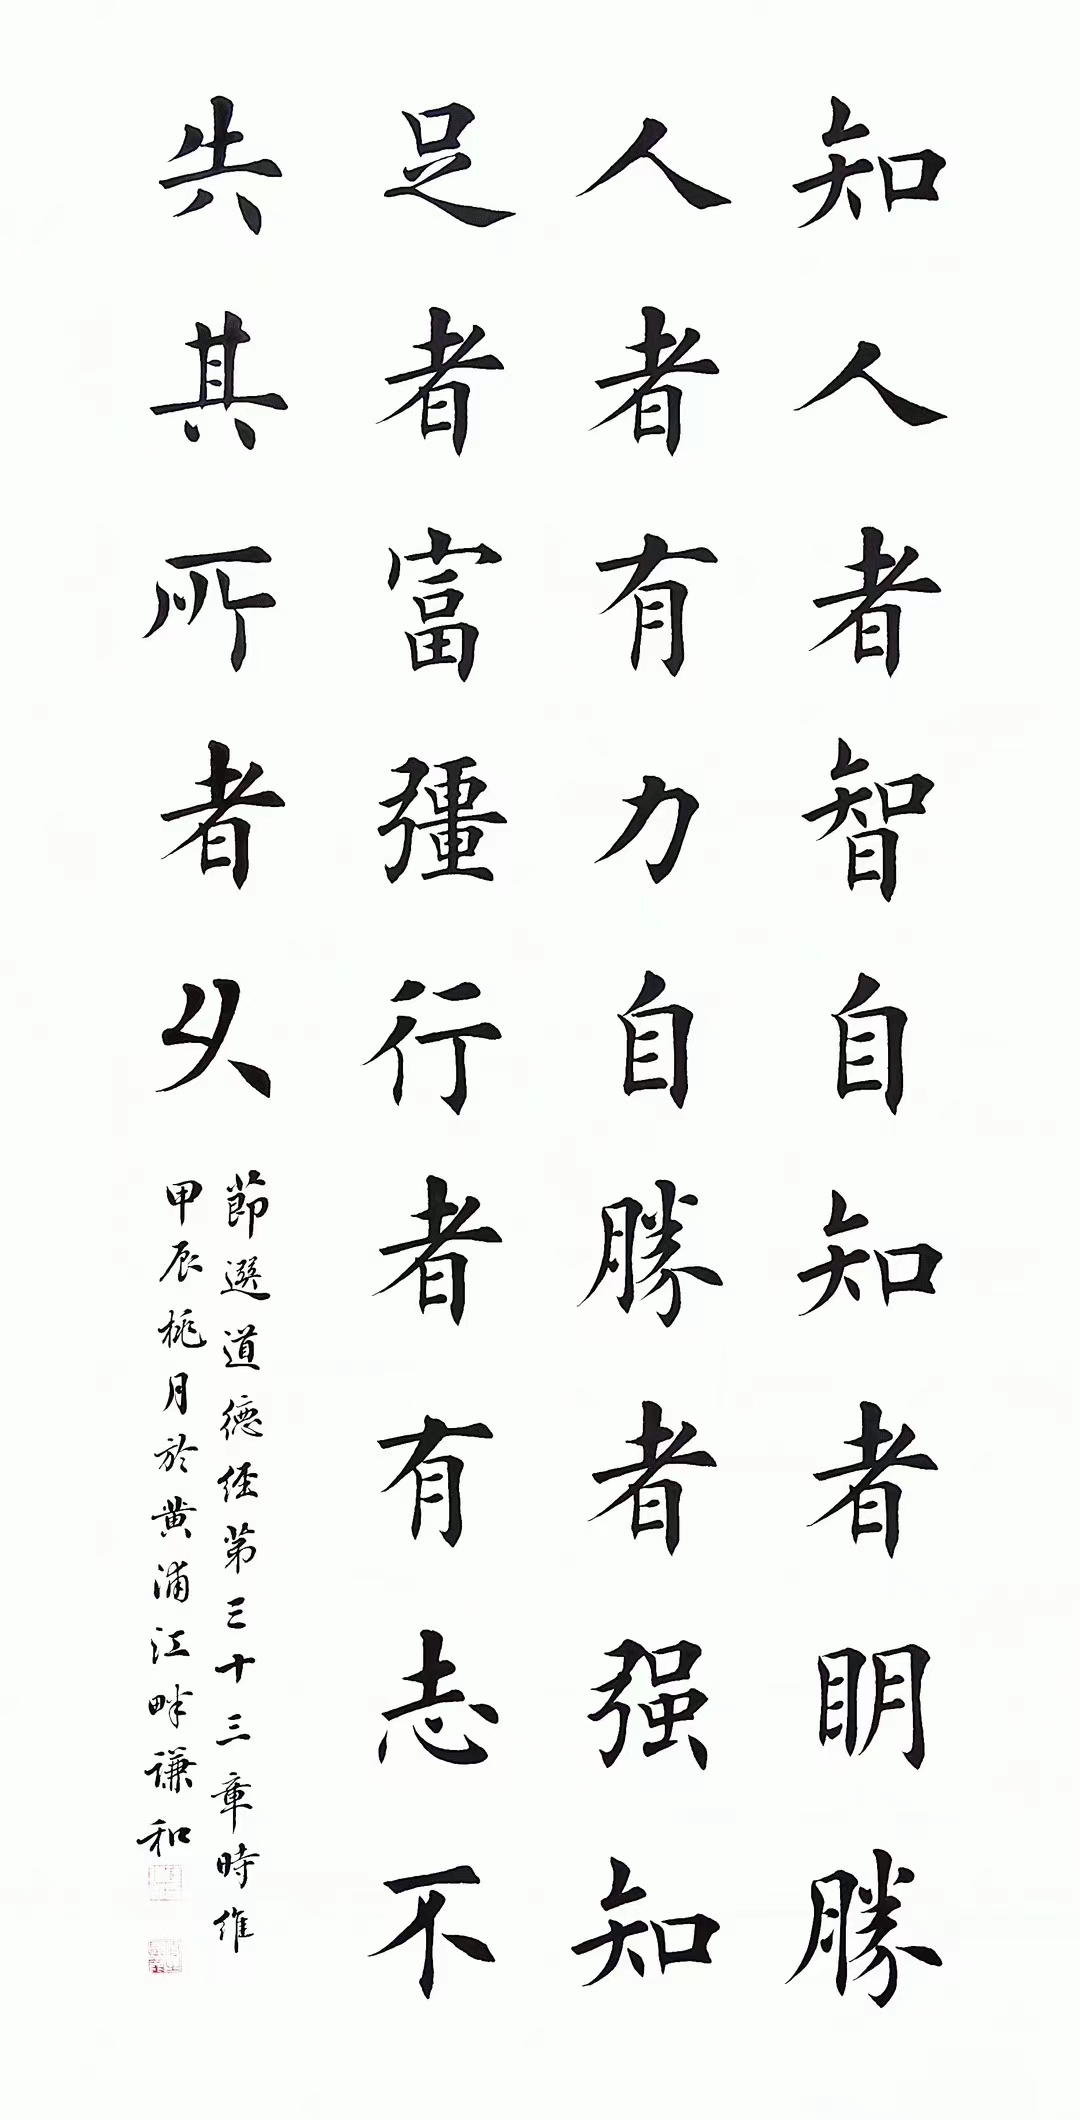 知人者智自知者明勝
人者有力自勝者强知
足者富彊行者有志不
失其所者久
節選道德經第三十三章時維
甲辰桃月於黄浦江畔謙和